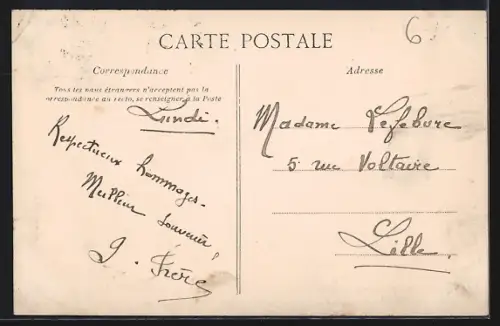 6
CARTE POSTALE
Correspondance
Tous les pays étrangers n'acceptent pas la
correspondance au recto, se renseigner à la Poste
Lundi.
Respectueux hommages.
Meilleur souvenir
J. Frère
Adresse
Madame Lefebvre
5 rue Voltaire
Lille.